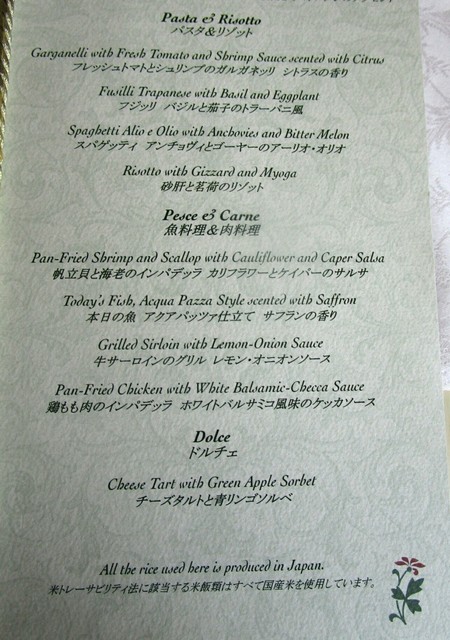 Pasta & Risotto
パスタ&リゾット
Garganelli with Fresh Tomato and Shrimp Sauce scented with Citrus
フレッシュトマトとシュリンプのガルガネッリ シトラスの香り
Fusilli Trapanese with Basil and Eggplant
フジッリ バジルと茄子のトラーパニ風
Spaghetti Alio e Olio with Anchovies and Bitter Melon
スパゲッティ アンチョヴィとゴーヤーのアーリオ・オリオ
Risotto with Gizzard and Myoga
砂肝と茗荷のリゾット
Pesce & Carne
魚料理&肉料理
Pan-Fried Shrimp and Scallop with Cauliflower and Caper Salsa
帆立貝と海老のインパデッラ カリフラワーとケイパーのサルサ
Today's Fish, Acqua Pazza Style scented with Saffron
本日の魚 アクアパッツァ仕立て サフランの香り
Grilled Sirloin with Lemon-Onion Sauce
牛サーロインのグリル レモン・オニオンソース
Pan-Fried Chicken with White Balsamic-Checca Sauce
鶏もも肉のインパデッラ ホワイトバルサミコ風味のケッカソース
Dolce
ドルチェ
Cheese Tart with Green Apple Sorbet
チーズタルトと青リンゴソルベ
All the rice used here is produced in Japan.
米トレーサビリティ法に該当する米飯類はすべて国産米を使用しています。